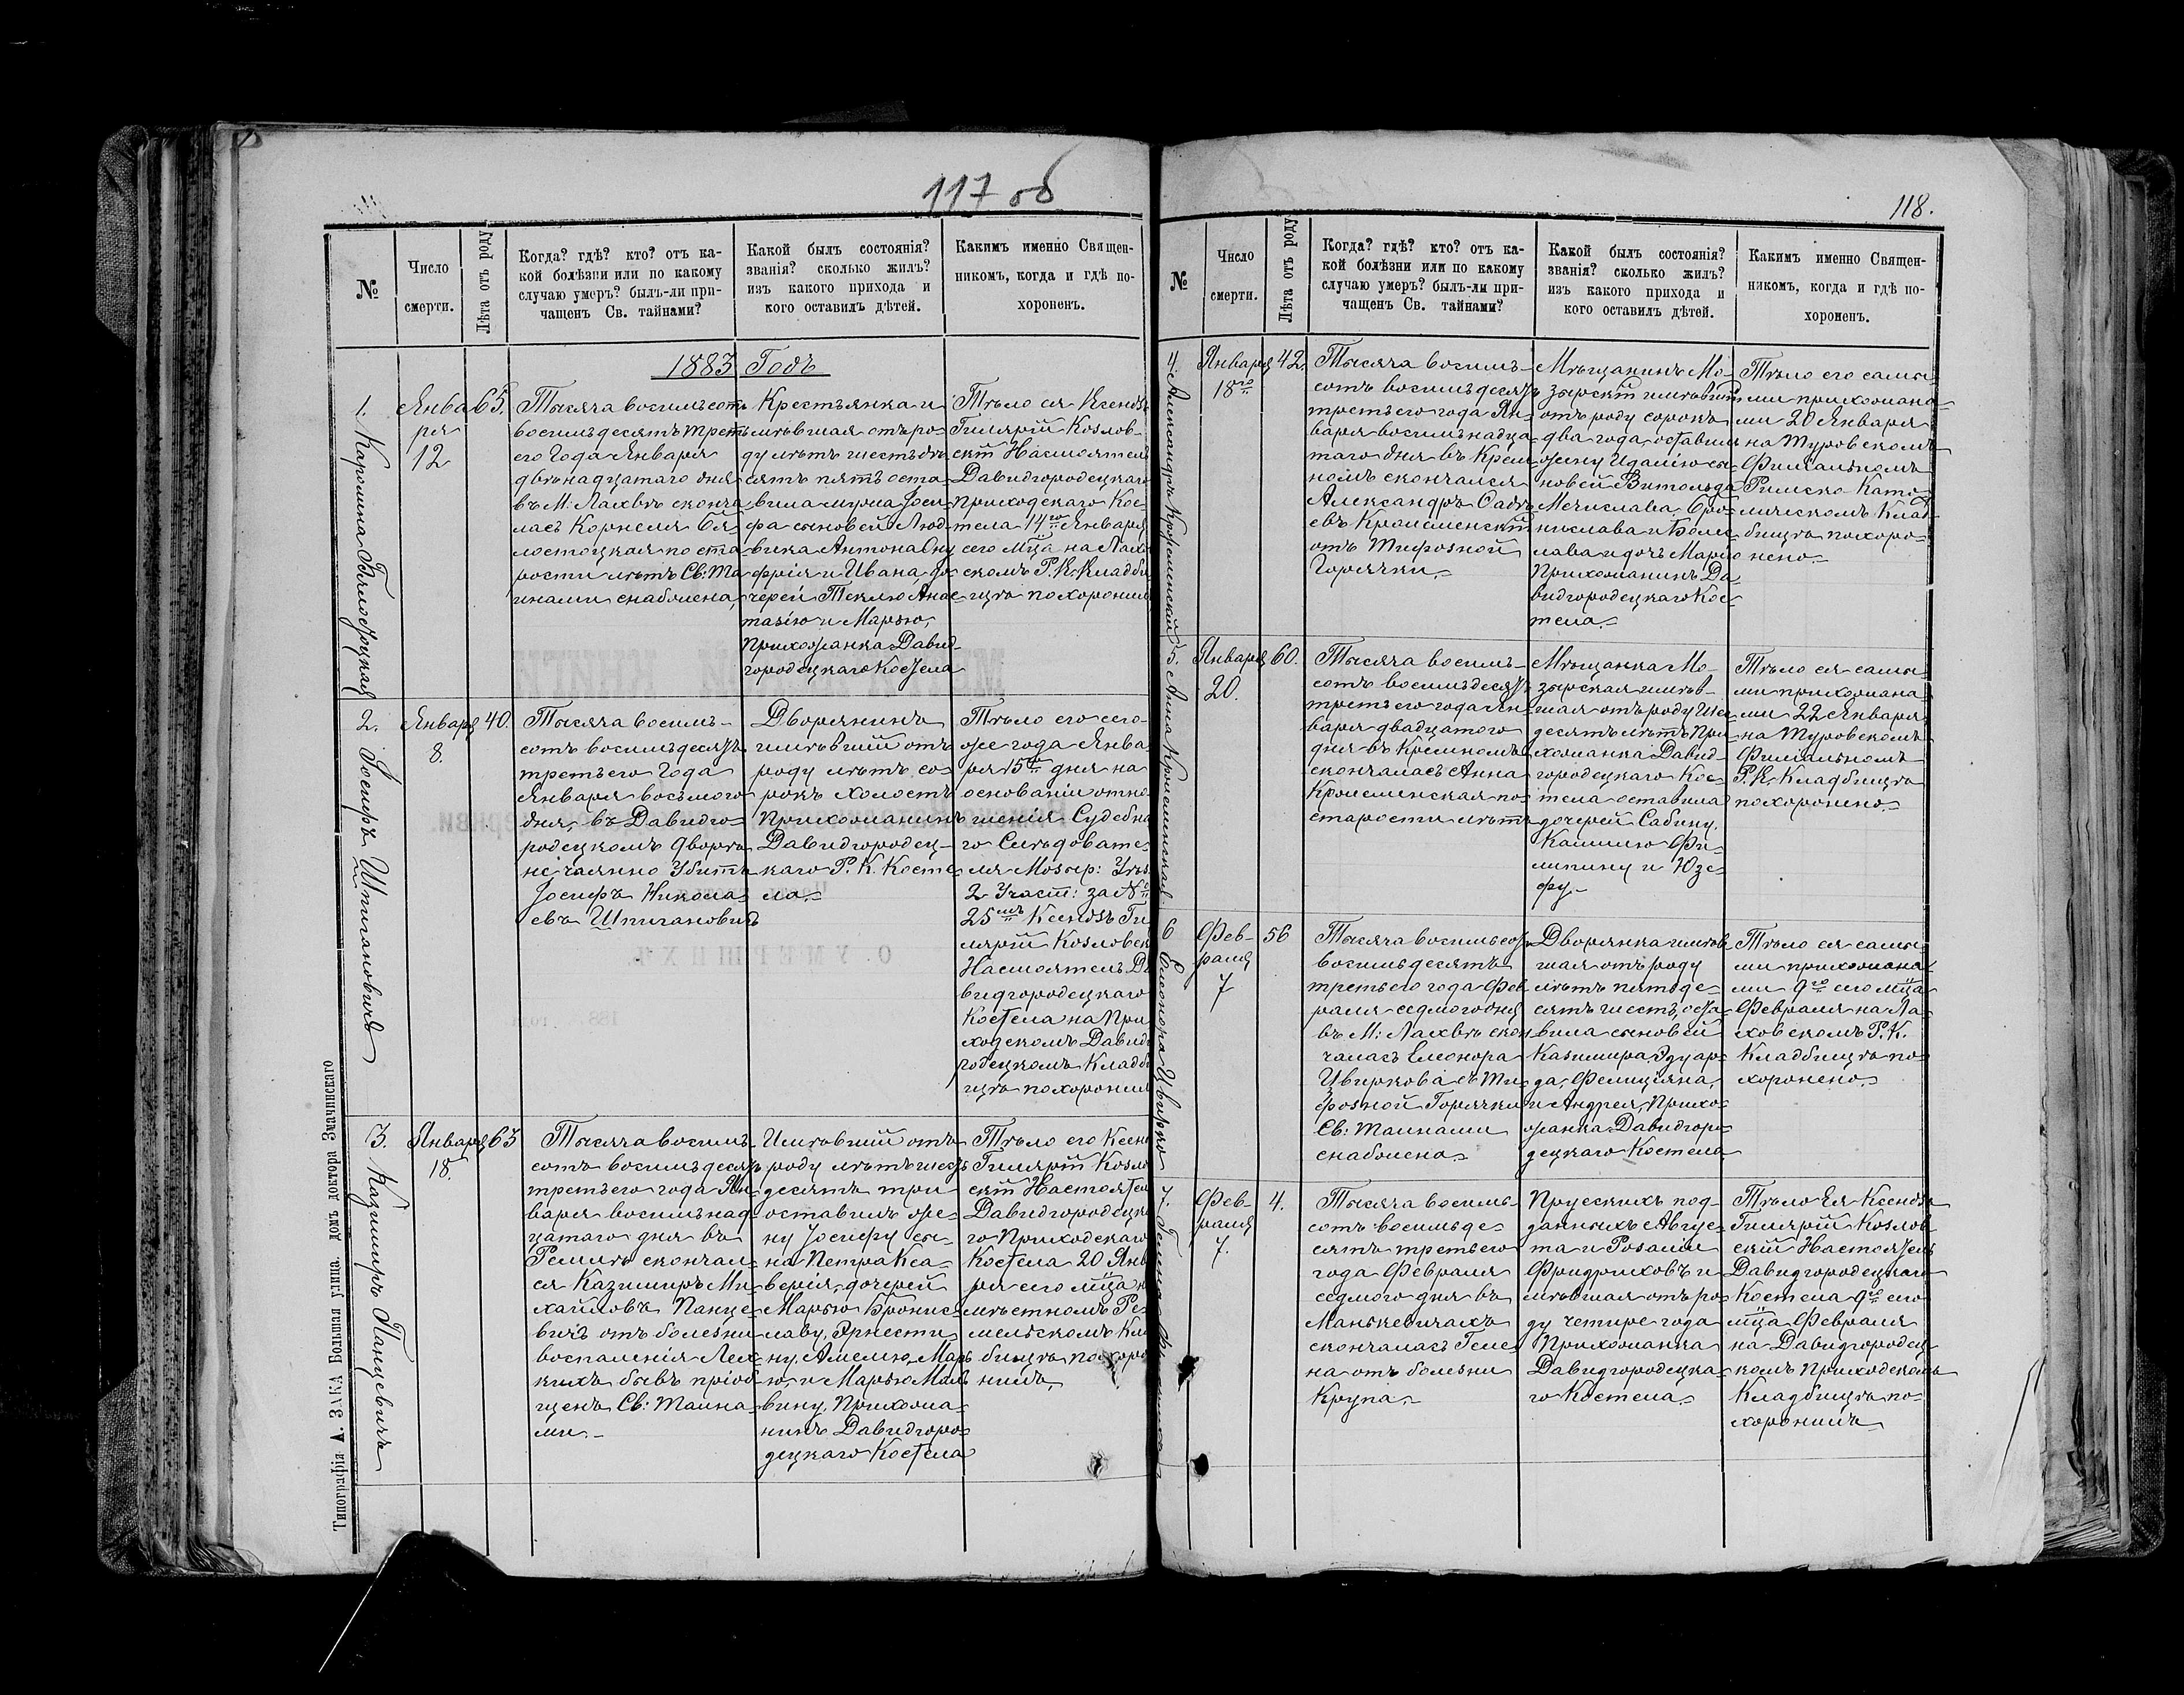 117 об
№
Число
смерти.
Лѣта отъ роду
Когда? гдѣ? кто? отъ ка-
кой болѣзни или по какому
случаю умеръ? былъ-ли при-
чащенъ Св. тайнами?
Какой былъ состоянія?
званія? сколько жилъ?
изъ какого прихода и
кого оставилъ дѣтей.
Какимъ именно Священ-
никомъ, когда и гдѣ по-
хороненъ.
1883 Годъ
1.
Каролина Бялостоцкая
Янва
ря
12
65.
Тысяча восимьсотъ
восимьдесятъ треть
его Года Января
двѣнадцатаго дня
въ М: Лахвѣ сконча
лась Корнеля Бя-
лостоцкая по ста-
рости лѣтъ Св: Та
инами снабжена,
Крестьянка и
мѣвшая отъ ро-
ду лѣтъ шестьдѣ
сятъ пять оста-
вила мужа Іоси
фа сыновей Люд-
вика Антона Ону
фрія и Ивана, до-
черей Теклю Анас-
тасію и Марью,
Прихожанка Давид-
городецкаго Костела
Тѣло ея Ксендзъ
Гилярій Козлов-
скій Настоятель
Давидгородецкаго
Приходскаго Кос-
тела 14го Января
сего мца на Лахв
скомъ Р. К. Кладби
щѣ похоронил
2.
Іосифъ Шпигановичъ
Января
8.
40.
Тысяча восимь-
сотъ восимьдесятъ
третьего Года
Января восьмого
дня, въ Давидго-
родецкомъ дворѣ
нечаянно Убитъ
Іосифъ Никола-
евъ Шпигановичъ
Дворянинъ
имѣвшій отъ
роду лѣтъ со-
рокъ холостъ
Прихожанинъ
Давидгородец-
каго Р. К. Косте-
ла.-
Тѣло его сего-
же года Янва
ря 15го дня на
основаніи отно-
шенія Судебна
го Слѣдовате-
ля Мозыр: Уѣз.
2 Участ: за №
25мъ Ксендзъ Ги
лярій Козловск
Настоятель Да
видгородецкаго
Костела на При
ходскомъ Давид
родецкомъ Кладби
щѣ похоронил
3.
Казимиръ Панцевичъ
Января
18.
63
Тысяча восимь-
сотъ восимьдесятъ
третьего года Ян-
варя восимьнад-
цатаго дня въ
Ремлѣ скончал-
ся Казимиръ Ми-
хайловъ Панце-
вичъ отъ болезни
воспаленія Лех-
кихъ бывъ пріоб-
щенъ Св: Таина-
ми.-
Имѣвшій отъ
роду лѣтъ шесть
десятъ три
оставилъ же-
ну Іосифу сы-
на Петра Кса-
верія, дочерей
Марью Бронис-
лаву, Эрнести-
ну, Амелю, Марь
ю, и Марью Маль
вину, Прихожа-
нинъ Давидгоро-
децкаго Костела
Тѣло его Ксен
Гилярій Козло
скій Настоятел
Давидгородецка
го Приходскаго
Костела 20 Янв
ря сего мца н
мѣстномъ Ре-
мельскомъ Кла
бищѣ похоро
нилъ,
Типографія А. ЗАКА Большая улица. домъ доктора Змачинскаго
118.
№
Число
смерти.
Лѣта отъ роду
Когда? гдѣ? кто? отъ ка-
кой болѣзни или по какому
случаю умеръ? былъ-ли при-
чащенъ Св. тайнами?
Какой былъ состоянія?
званія? сколько жилъ?
изъ какого прихода и
кого оставилъ дѣтей.
Какимъ именно Священ-
никомъ, когда и гдѣ по-
хороненъ.
4.
Александръ Кржеминскій
Января
18го
42.
Тысяча восимь-
сотъ восимьдесятъ
третьего года Ян-
варя восимьнадца-
таго дня въ Крем-
номъ скончался
Александръ
евъ Кржеменскій
отъ Тифозной
Горячки.-
Мѣщанинъ Мо-
зырскій имѣвшій
отъ роду сорокъ
два года, оставилъ
жену Идалію сы-
новей Витольда
Мечислава, Бро-
нислава и Боле-
лава и дочь Марію
Прихожанинъ Да-
видгородецкаго Кос-
тела.-
Тѣло его самы-
ми прихожана-
ми 20 Января
на Туровскомъ
Филіальномъ
Римско-Като-
лическомъ Клад-
бищѣ похоро-
нено.-
5.
Анна Кржеминская
Января
20.
60.
Тысяча восимь-
сотъ восимьдесятъ
третьего года Ян-
варя двадцатого
дня въ Кремномъ
скончалась Анна
Кржеменская по-
старости лѣтъ
Мѣщанка Мо-
зырская имѣв-
шая отъ роду Шес
десятъ лѣтъ При
хожанка Давид-
городецкаго Кос-
тела оставила
дочерей Сабину,
Камилю Фи-
липину и Юзе-
фу.-
Тѣло ея самы-
ми прихожана-
ми 22 Января
на Туровскомъ
Филіальномъ
Р. К. Кладбищѣ
похоронено.-
6
Елеонора Цвирко
Фев-
раля
7
56
Тысяча восимьсотъ
восимьдесятъ
третьего года Фев
раля седмого дня
въ М: Лахвѣ скон
чалась Елеонора
Цвиркова съ Ти-
фозной Горячки
Св: Таинами
снабжена.-
Дворянка имѣв
шая отъ роду
лѣтъ пятьде-
сятъ шесть, оста-
вила сыновей
Казимира Эдуар-
да, Фелиціяна,
и Андрея, Прихо-
жанка Давидгоро-
децкаго Костела
Тѣло ея самы-
ми прихожана-
ми 9го сего мца
Февраля на Ла-
ховскомъ Р. К.
Кладбищѣ по-
хоронено.-
7.
Фев-
раля
7.
4.
Тысяча восимь-
сотъ восимьде-
сятъ третьего
года Февраля
седмого дня въ
Манькевичахъ
скончалась Геле-
на отъ болезни
Крупа.-
Прусскихъ под-
данныхъ Авгус-
та и Розаліи
Фридриховъ и
мѣвшая отъ ро-
ду четире года
Прихожанка
Давидгородецка-
го Костела.-
Тѣло Ея Ксендзъ
Гилярій Козлов-
скій Настоятель
Давидгородецкаго
Костела 9го сего
мца Февраля
на Давидгородец-
комъ Приходскомъ
Кладбищѣ по-
хоронилъ